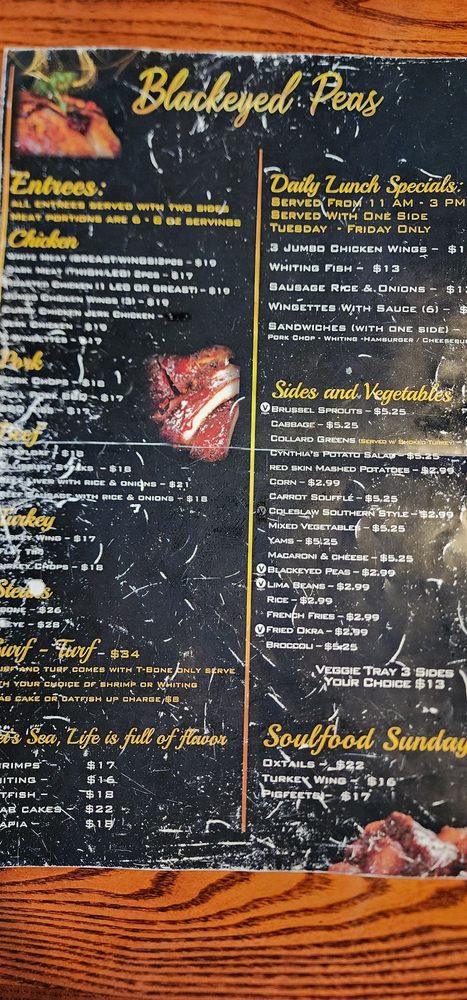 Blackeyed Peas
Entrees:
ALL ENTREES SERVED WITH TWO SIDES
MEAT PORTIONS ARE 6 - 8 OZ SERVINGS
Chicken
MEAT (BREAST/WINGS)2PCS - $19
MEAT (THIGH/LEG) 2PCS - $17
CHICKEN (1 LEG OR BREAST) - $19
CHICKEN WINGS (3) - $19
CHICKEN JERK CHICKEN -
- $19
- $17
Pork
CHOPS - $18
PORK - $17
- $17
Beef
$18
- $18
LIVER WITH RICE & ONIONS - $21
SAUSAGE WITH RICE & ONIONS - $18
Turkey
WING - $17
CHOPS - $18
Steaks
BONE - $26
EYE - $28
Surf - Turf - $34
SURF AND TURF COMES WITH T-BONE ONLY SERVE
YOUR CHOICE OF SHRIMP OR WHITING
CAKE OR CATFISH UP CHARGE $8
Sea, Life is full of flavor
SHRIMPS $17
WHITING - $16
CATFISH - $18
CRAB CAKES - $22
TILAPIA - $18
Daily Lunch Specials:
SERVED FROM 11 AM - 3 PM
SERVED WITH ONE SIDE
TUESDAY - FRIDAY ONLY
3 JUMBO CHICKEN WINGS -
WHITING FISH - $13
SAUSAGE RICE & ONIONS -
WINGETTES WITH SAUCE (6) -
SANDWICHES (WITH ONE SIDE) -
PORK CHOP - WHITING -HAMBURGER / CHEESEBU
Sides and Vegetables
V BRUSSEL SPROUTS - $5.25
CABBAGE - $5.25
COLLARD GREENS (SERVED W/ SMOKED TURKEY)
CYNTHIA'S POTATO SALAD - $5.25
RED SKIN MASHED POTATOES - $2.99
CORN - $2.99
CARROT SOUFFLÉ - $5.25
COLESLAW SOUTHERN STYLE - $2.99
MIXED VEGETABLES - $5.25
YAMS - $5.25
MACARONI & CHEESE - $5.25
V BLACKEYED PEAS - $2.99
V LIMA BEANS - $2.99
RICE - $2.99
FRENCH FRIES - $2.99
V FRIED OKRA - $2.99
BROCCOLI - $5.25
VEGGIE TRAY 3 SIDES
YOUR CHOICE $13
Soulfood Sunday
OXTAILS - $22
TURKEY WING - $16
PIGFEETS - $17